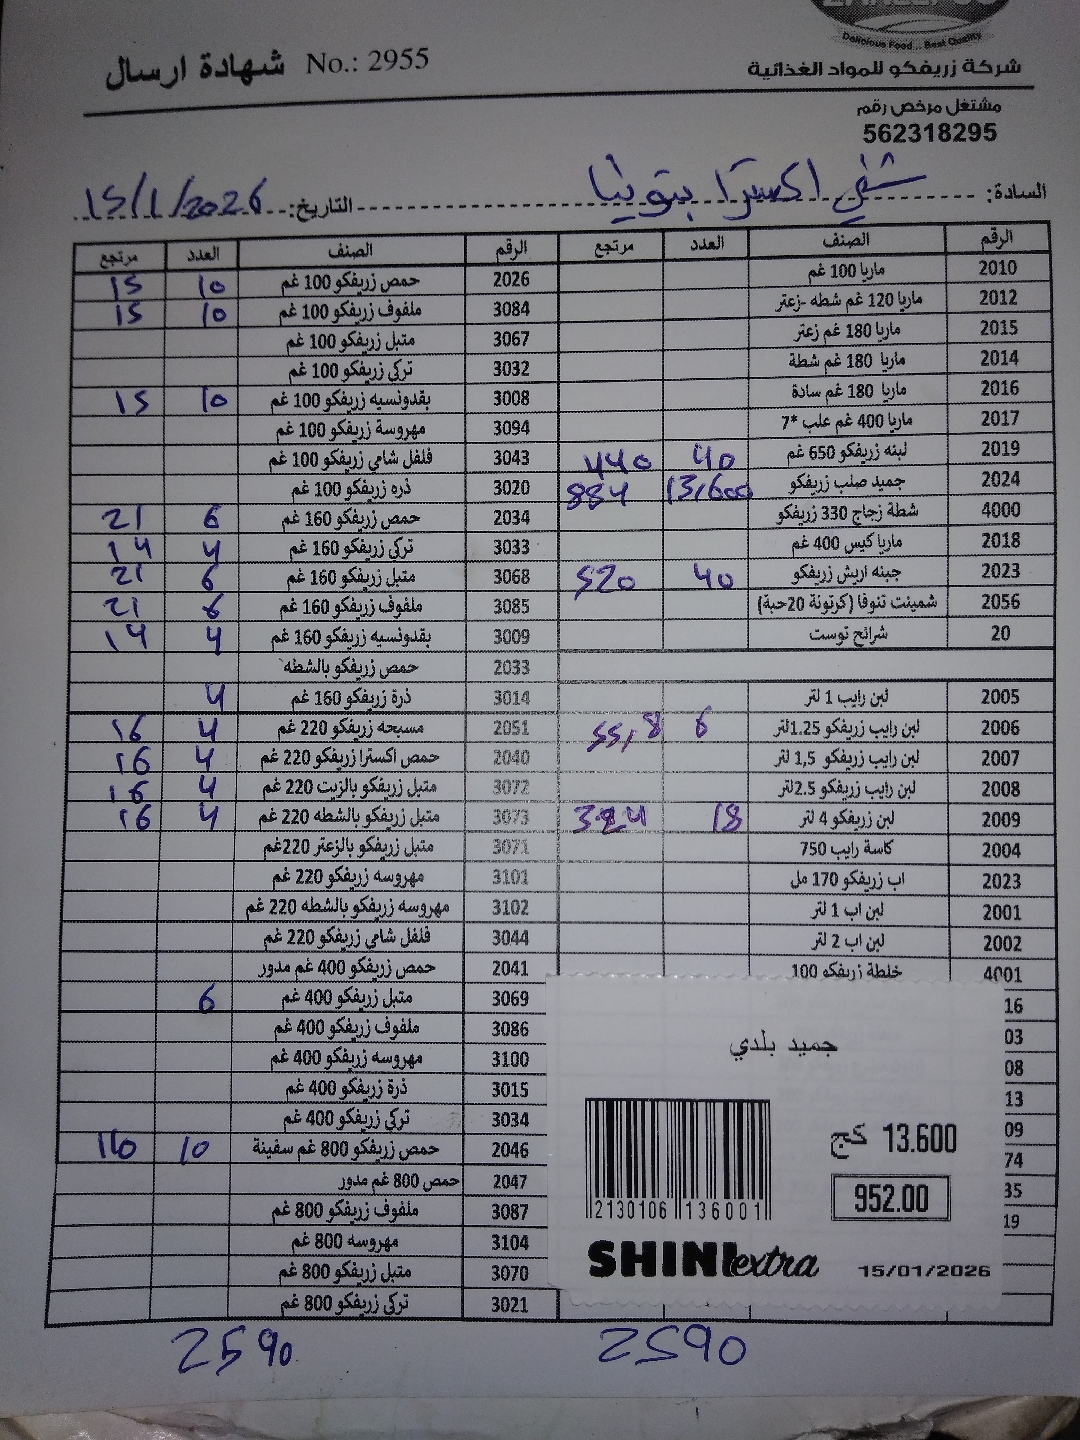 Delicious Food .. Best Quality
شركة زريفكو للمواد الغذائية
شهادة ارسال No.: 2955
مشتغل مرخص رقم
562318295
السادة: شني اكسترا بيتونيا التاريخ: 15/1/2026
الرقم الصنف العدد مرتجع الرقم الصنف العدد مرتجع
2010 ماريا 100 غم 2026 حمص زريفكو 100 غم 10 15
2012 ماريا 120 غم شطه -زعتر 3084 ملفوف زريفكو 100 غم 10 15
2015 ماريا 180 غم زعتر 3067 متبل زريفكو 100 غم
2014 ماريا 180 غم شطة 3032 تركي زريفكو 100 غم
2016 ماريا 180 غم سادة 3008 بقدونسيه زريفكو 100 غم 10 15
2017 ماريا 400 غم علب *7 3094 مهروسة زريفكو 100 غم
2019 لبنه زريفكو 650 غم 40 440 3043 فلفل شامي زريفكو 100 غم
2024 جميد صلب زريفكو 13,600 884 3020 ذره زريفكو 100 غم
4000 شطة زجاج 330 زريفكو 2034 حمص زريفكو 160 غم 6 21
2018 ماريا كيس 400 غم 3033 تركي زريفكو 160 غم 4 14
2023 جبنه اريش زريفكو 40 520 3068 متبل زريفكو 160 غم 6 21
2056 شمينت تنوفا (كرتونة 20حبة) 3085 ملفوف زريفكو 160 غم 6 21
20 شرائح توست 3009 بقدونسيه زريفكو 160 غم 4 14
2033 حمص زريفكو بالشطه
2005 لبن رايب 1 لتر 3014 ذرة زريفكو 160 غم 4
2006 لبن رايب زريفكو 1.25لتر 6 55,8 2051 مسبحه زريفكو 220 غم 4 16
2007 لبن رايب زريفكو 1,5 لتر 2040 حمص اكسترا زريفكو 220 غم 4 16
2008 لبن رايب زريفكو 2.5لتر 3072 متبل زريفكو بالزيت 220 غم 4 16
2009 لبن زريفكو 4 لتر 18 324 3073 متبل زريفكو بالشطه 220 غم 4 16
2004 كاسة رايب 750 3071 متبل زريفكو بالزعتر 220غم
2023 اب زريفكو 170 مل 3101 مهروسه زريفكو 220 غم
2001 لبن اب 1 لتر 3102 مهروسه زريفكو بالشطه 220 غم
2002 لبن اب 2 لتر 3044 فلفل شامي زريفكو 220 غم
4001 خلطة زريفكو 100 2041 حمص زريفكو 400 غم مدور
16 3069 متبل زريفكو 400 غم 6
03 3086 ملفوف زريفكو 400 غم
08 3100 مهروسه زريفكو 400 غم
13 3015 ذرة زريفكو 400 غم
09 3034 تركي زريفكو 400 غم
74 2046 حمص زريفكو 800 غم سفينة 10 110
35 2047 حمص 800 غم مدور
19 3087 ملفوف زريفكو 800 غم
3104 مهروسه 800 غم
3070 متبل زريفكو 800 غم
3021 تركي زريفكو 800 غم
جميد بلدي
13.600 كج
952.00
2130106 136001
SHINI extra 15/01/2026
2590 2590